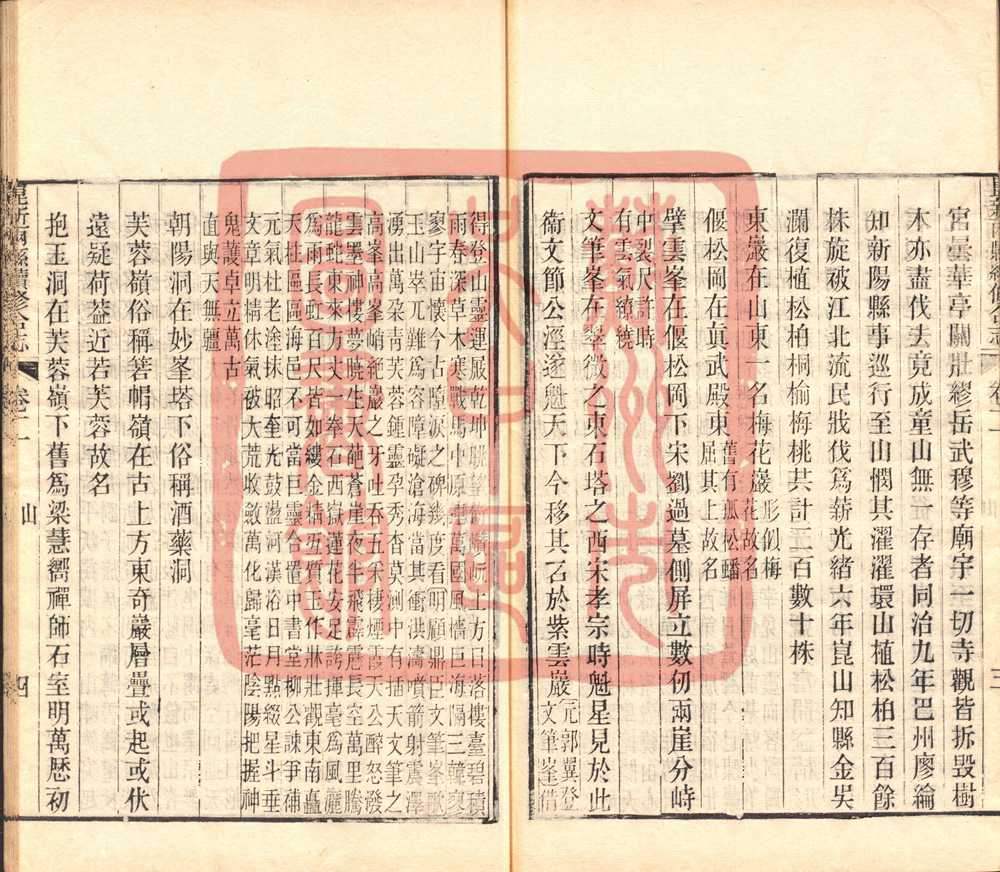 宮曇華亭關壯繆岳武穆等廟宇一切寺觀皆拆毀樹
木亦盡伐去竟成童山無一存者同治九年巴州廖綸
知新陽縣事巡行至山憫其濯濯環山植松柏三百餘
株旋被江北流民戕伐爲薪光緒六年崑山知縣金吳
瀾復植松柏桐榆梅桃共計三百數十株
東巖在山東一名梅花巖形似梅花故名
偃松岡在真武殿東舊有孤松蟠屈其上故名
擘雲峯在偃松岡下宋劉過墓側屏立數仞兩崖分峙
中裂尺許時有雲氣繚繞
文筆峯在翠微之東石塔之西宋孝宗時魁星見於此
衞文節公涇遂魁天下今移其石於紫雲巖元郭翼登文筆峯借
得登山靈運屐乾坤眺望
上方日落樓臺碧積
雨春深草木寒戰馬中原
萬國風檣巨海隔三韓寥
寥宇宙懷今古墮淚之碑幾度看明顧鼎臣文筆峯歌
玉山崒兀難爲容障擬滄海當其衝洪濤噴箭射震澤
湧出萬朶靑芙蓉鍾靈孕秀杳莫測中有插天文筆之
高峯高峯峭絕巖之牙吐吞五采棲煙霞天公醉怒潑
雲墨神樓夢曉生天葩蒼崖夜半飛霹靂長空萬里騰
龍蛇東來方丈一奉石西嶽蓮花安足誇揮毫爲風灑
爲雨長虹百尺苦如縷金精爲質玉作牀壯觀東南矗
天柱區區海邑不可當巨靈合置中書堂柳公諫爭蒲
元氣杜老塗抹昭奎光鼓盪河漢浴日月點綴星斗垂
文章明精休氣氣或破大荒收斂萬化歸毫茫陰陽把握神
鬼護卓立萬古
直與天無疆
朝陽洞在妙峯塔下俗稱酒藥洞
芙蓉嶺俗稱箬帽嶺在古上方東奇巖層疊或起或伏
遠疑荷蓋近若芙蓉故名
抱玉洞在芙蓉嶺下舊爲梁慧嚮禪師石室明萬厯初
崑新兩縣續修合志
卷二
山
四